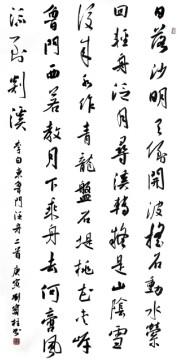 日落沙明天倒開波搖石動水縈
回輕舟泛月尋溪轉疑是山陰雪
後來水作青龍盤石堤桃花夾岸
魯門西若教月下乘舟去何啻風
流到剡溪
李白東魯門泛舟二首 庚寅